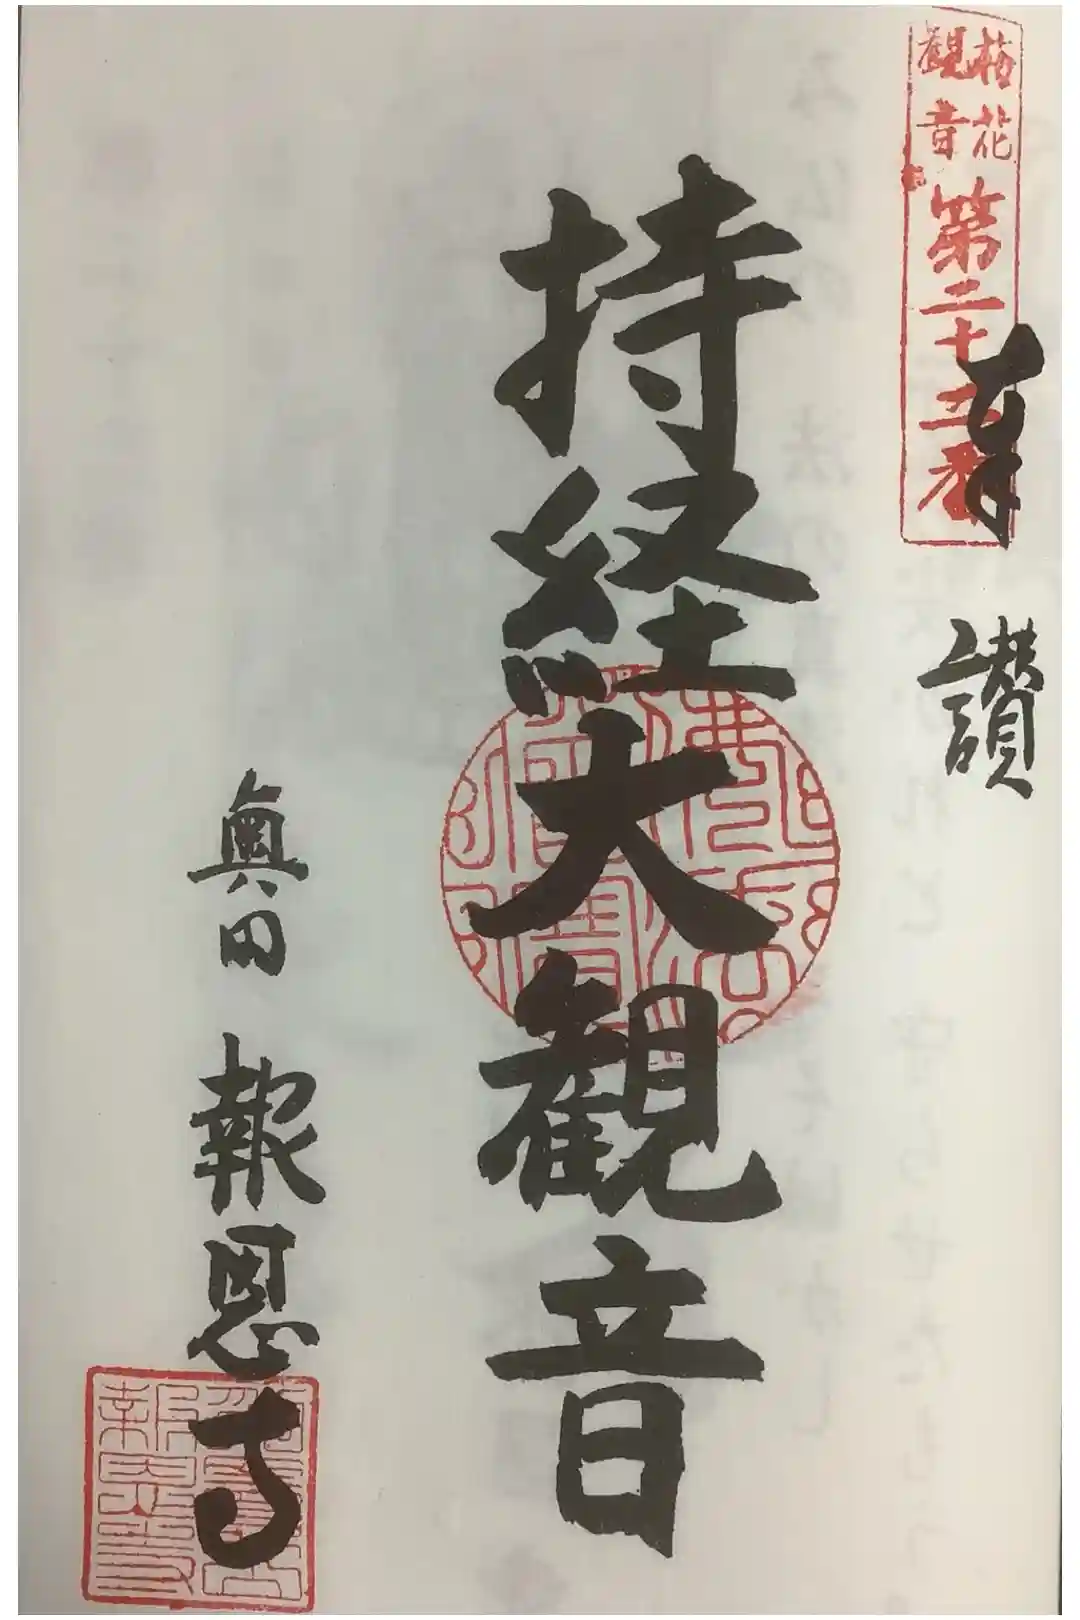 梅花
観音
第二十二番
奉
讃
持経大観音
奥田
報恩寺